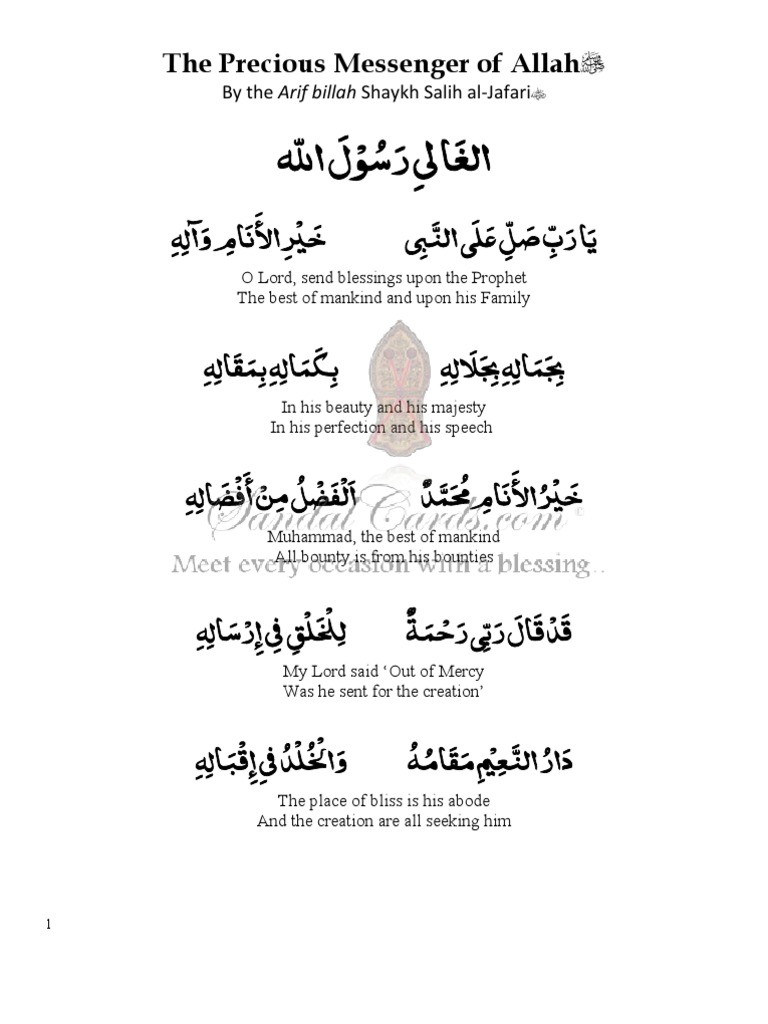 The Precious Messenger of Allahﷺ
By the Arif billah Shaykh Salih al-Jafari
الغَالِي رَسُوْلَ اللّه
يَا رَبِّ صَلِّ عَلَى النَّبِى خَيْرِ الأَنَامِ وَآلِهِ
O Lord, send blessings upon the Prophet
The best of mankind and upon his Family
بِجَمَالِهِ بِجَلَالِهِ بِكَمَالِهِ بِمَقَالِهِ
In his beauty and his majesty
In his perfection and his speech
خَيْرُ الأَنَامِ مُحَمَّدٌ اَلْفَضْلُ مِنْ أَفْضَالِهِ
Sandal Cards.com ©
Muhammad, the best of mankind
All bounty is from his bounties
Meet every occasion with a blessing..
قَدْ قَالَ رَبِّي رَحْمَةٌ لِلْخَلْقِ فِي إِرْسَالِهِ
My Lord said ‘Out of Mercy
Was he sent for the creation’
دَارُ النَّعِيْمِ مَقَامُهُ وَالْخُلْدُ فِي إِقْبَالِهِ
The place of bliss is his abode
And the creation are all seeking him
1